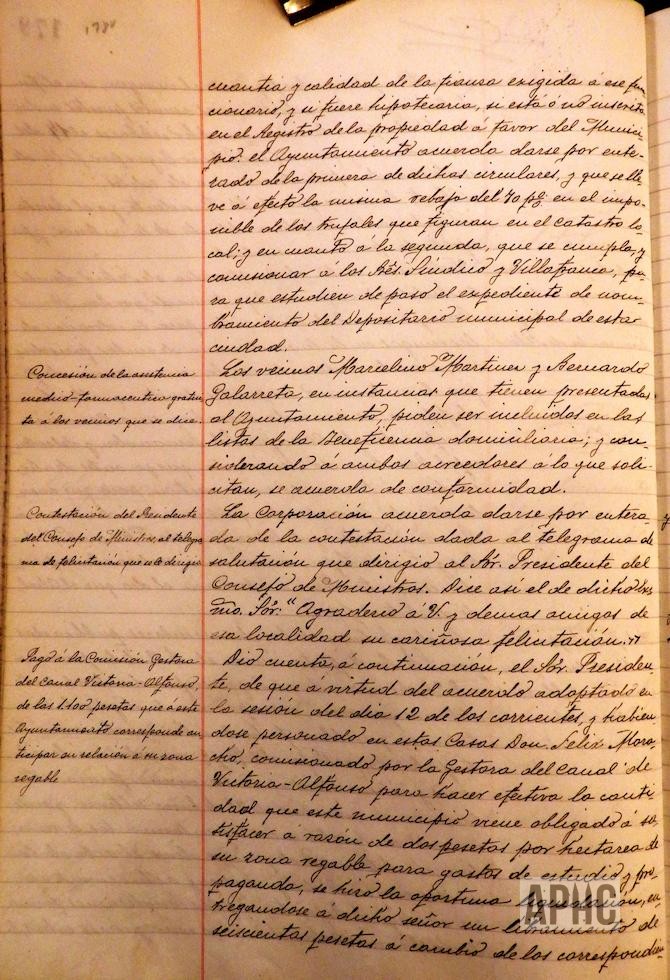 cuantia y calidad de la fianza exigida á ese fun
cionario, y si fuere hipotecaria, si está ó nó inscrita
en el Registro de la propiedad á favor del Munici-
pio: el Ayuntamiento acuerda darse por ente-
rado de la primera de dichas circulares, y que se lle-
ve á efecto la misma rebaja del 40 p% en el impo-
nible de los trujales que figuran en el catastro lo-
cal; y en cuanto á la segunda, que se cumpla, y
comisionar á los Srés. Síndico y Villafranca, pa-
ra que estudien de paso el expediente de nom-
bramiento del Depositario municipal de esta
ciudad.
Concesión de la asistencia
medico-farmaceutica gratui
ta á los vecinos que se dice.
Los vecinos Marcelino Martinez y Bernardo
Galarreta, en instancias que tienen presentadas
al Ayuntamiento, piden ser incluidos en las
listas de la Beneficencia domiciliaria; y con-
siderando á ambos acreedores á lo que soli-
citan, se acuerda de conformidad.
Contestación del Presidente
del Consejo de Ministros, al telegra
ma de felicitación que se le dirigió
La Corporación acuerda darse por entera-
da de la contestación dada al telegrama de
salutación que dirigió al Sór. Presidente del
Consejo de Ministros. Dice así el de dicho Exc
mo. Sór: "Agradezco á V. y demas amigos de
esa localidad su cariñosa felicitación."
Pago á la Comisión Gestora
del Canal Victoria-Alfonso,
de las 1.100 pesetas que á este
Ayuntamiento corresponde an
ticipar en relación á su zona
regable
Dió cuenta, á continuación, el Sór. Presiden-
te, de que á virtud del acuerdo adoptado en
la sesión del dia 12 de los corrientes, y habien-
dose personado en estas Casas Don Felix Mora-
cho, comisionado por la Gestora del Canal de
Victoria-Alfonso para hacer efectiva la canti-
dad que este municipio viene obligado á sa-
tisfacer a razón de dos pesetas por hectarea de
su zona regable para gastos de estudio y pro-
paganda, se hizo la oportuna liquidación, en
tregandose á dicho señor un libramiento de
seiscientas pesetas á cambio de los correspondien
APHC